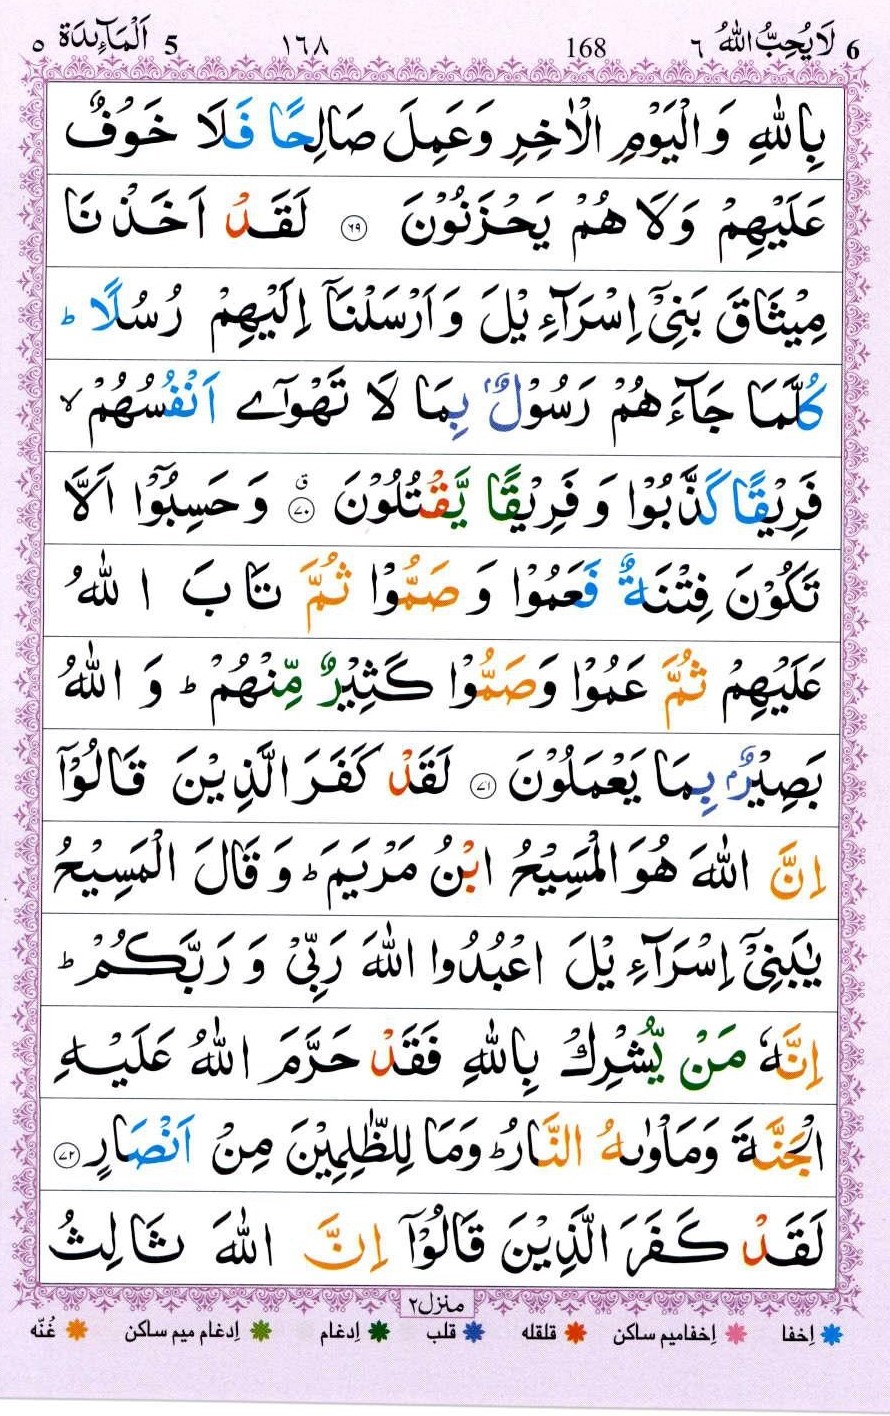 6 لَا يُحِبُّ اللّٰهُ ٦ 168 ١٦٨ 5 اَلْمَآئِدَة ٥
بِاللّٰهِ وَ الْيَوْمِ الْاٰخِرِ وَعَمِلَ صَالِحًا فَلَا خَوْفٌ
عَلَيْهِمْ وَلَا هُمْ يَحْزَنُوْنَ ۝٦٩ لَقَدْ اَخَذْنَا
مِيْثَاقَ بَنِيْۤ اِسْرَآءِيْلَ وَ اَرْسَلْنَاۤ اِلَيْهِمْ رُسُلًا ؕ
كُلَّمَا جَآءَهُمْ رَسُوْلٌۢ بِمَا لَا تَهْوٰۤى اَنْفُسُهُمْ ۙ
فَرِيْقًا كَذَّبُوْا وَ فَرِيْقًا يَّقْتُلُوْنَ ۝٧٠ ق وَ حَسِبُوْۤا اَلَّا
تَكُوْنَ فِتْنَةٌ فَعَمُوْا وَ صَمُّوْا ثُمَّ تَابَ اللّٰهُ
عَلَيْهِمْ ثُمَّ عَمُوْا وَصَمُّوْا كَثِيْرٌ مِّنْهُمْ ؕ وَ اللّٰهُ
بَصِيْرٌۢ بِمَا يَعْمَلُوْنَ ۝٧١ لَقَدْ كَفَرَ الَّذِيْنَ قَالُوْۤا
اِنَّ اللّٰهَ هُوَ الْمَسِيْحُ ابْنُ مَرْيَمَ ؕ وَ قَالَ الْمَسِيْحُ
يٰبَنِيْۤ اِسْرَآءِيْلَ اعْبُدُوا اللّٰهَ رَبِّيْ وَ رَبَّكُمْ ؕ
اِنَّهٗ مَنْ يُّشْرِكْ بِاللّٰهِ فَقَدْ حَرَّمَ اللّٰهُ عَلَيْهِ
الْجَنَّةَ وَمَاْوٰىهُ النَّارُ ؕ وَمَا لِلظّٰلِمِيْنَ مِنْ اَنْصَارٍ ۝٧٢
لَقَدْ كَفَرَ الَّذِيْنَ قَالُوْۤا اِنَّ اللّٰهَ ثَالِثُ
منزل٢
اِخفا اِخفامیم ساکن قلقله قلب اِدغام اِدغام میم ساکن غُنّه